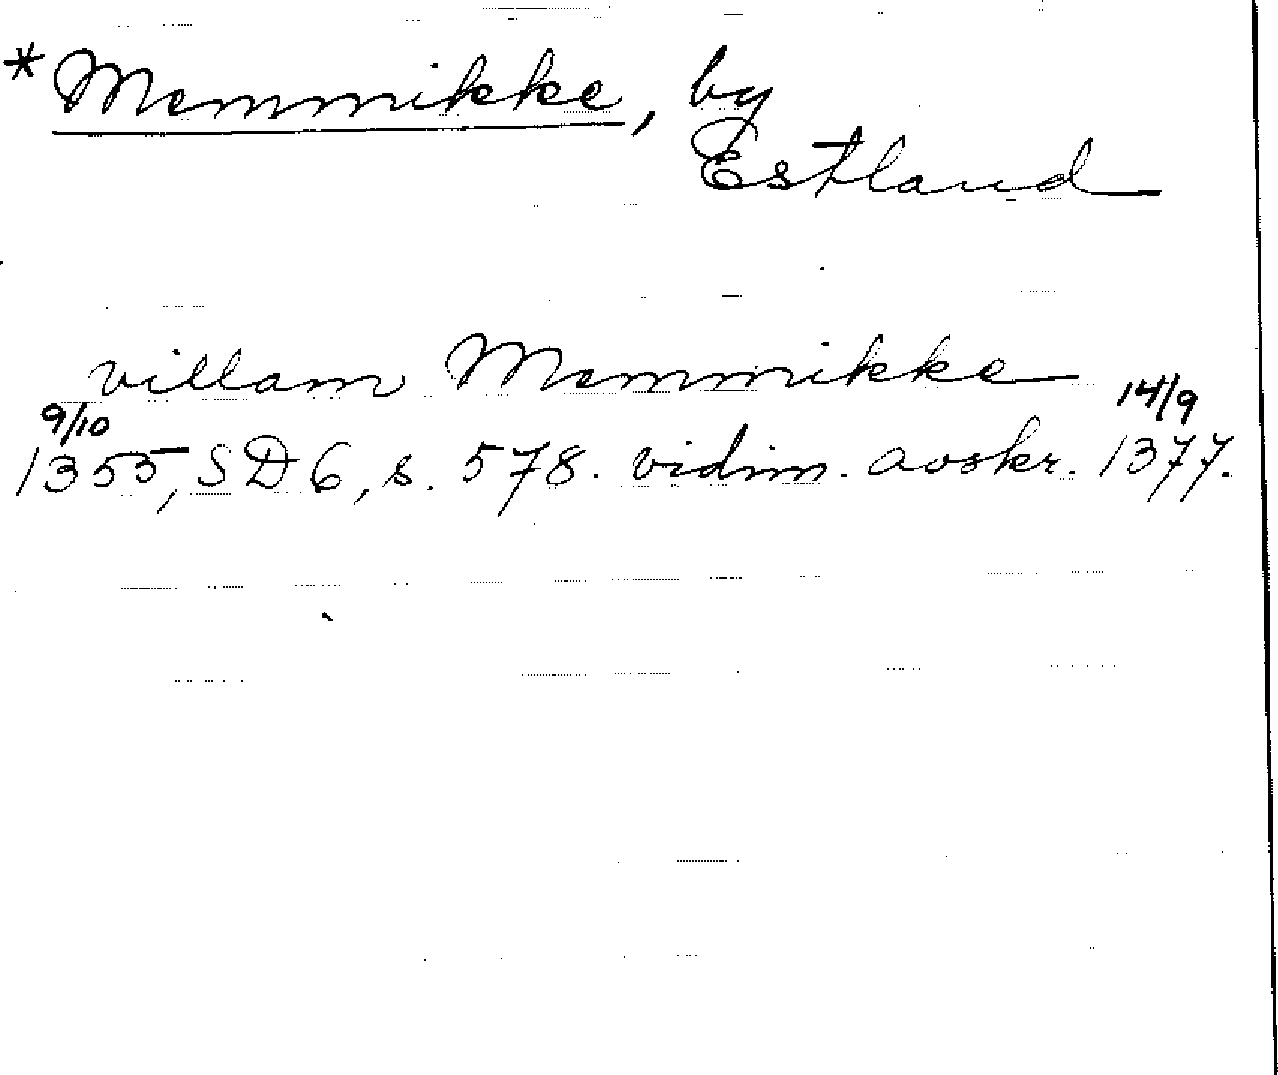 *Memmikke, by
Estland
villam Memmikke
9/10 14/9
1355, SD 6, s. 578. vidim. avskr. 1377.